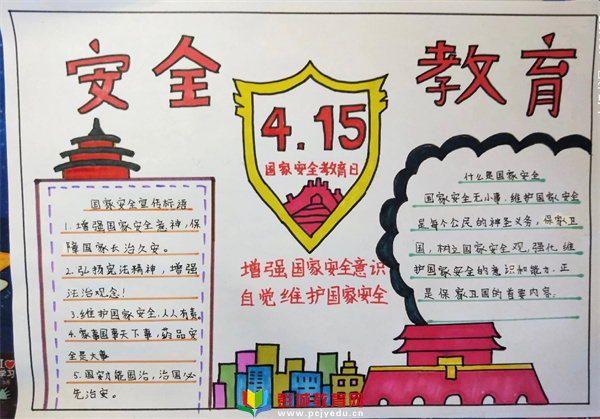 安全教育
4.15
国家安全教育日
增强国家安全意识
自觉维护国家安全
国家安全宣传标语
1.增强国家安全意神,保
障国家长治久安。
2.弘扬宪法精神,增强
法治观念!
3.维护国家安全,人人有责。
4.家事国事天下事,药品安
全是大事
5.国安才能国治,治国必
先治安。
什么是国家安全
国家安全无小事,维护国家安全
是每个公民的神圣义务,保家卫
国,树立国家安全观,强化维
护国家安全的意识和能力,正
是保家卫国的首要内容。
www.pcjyedu.cn